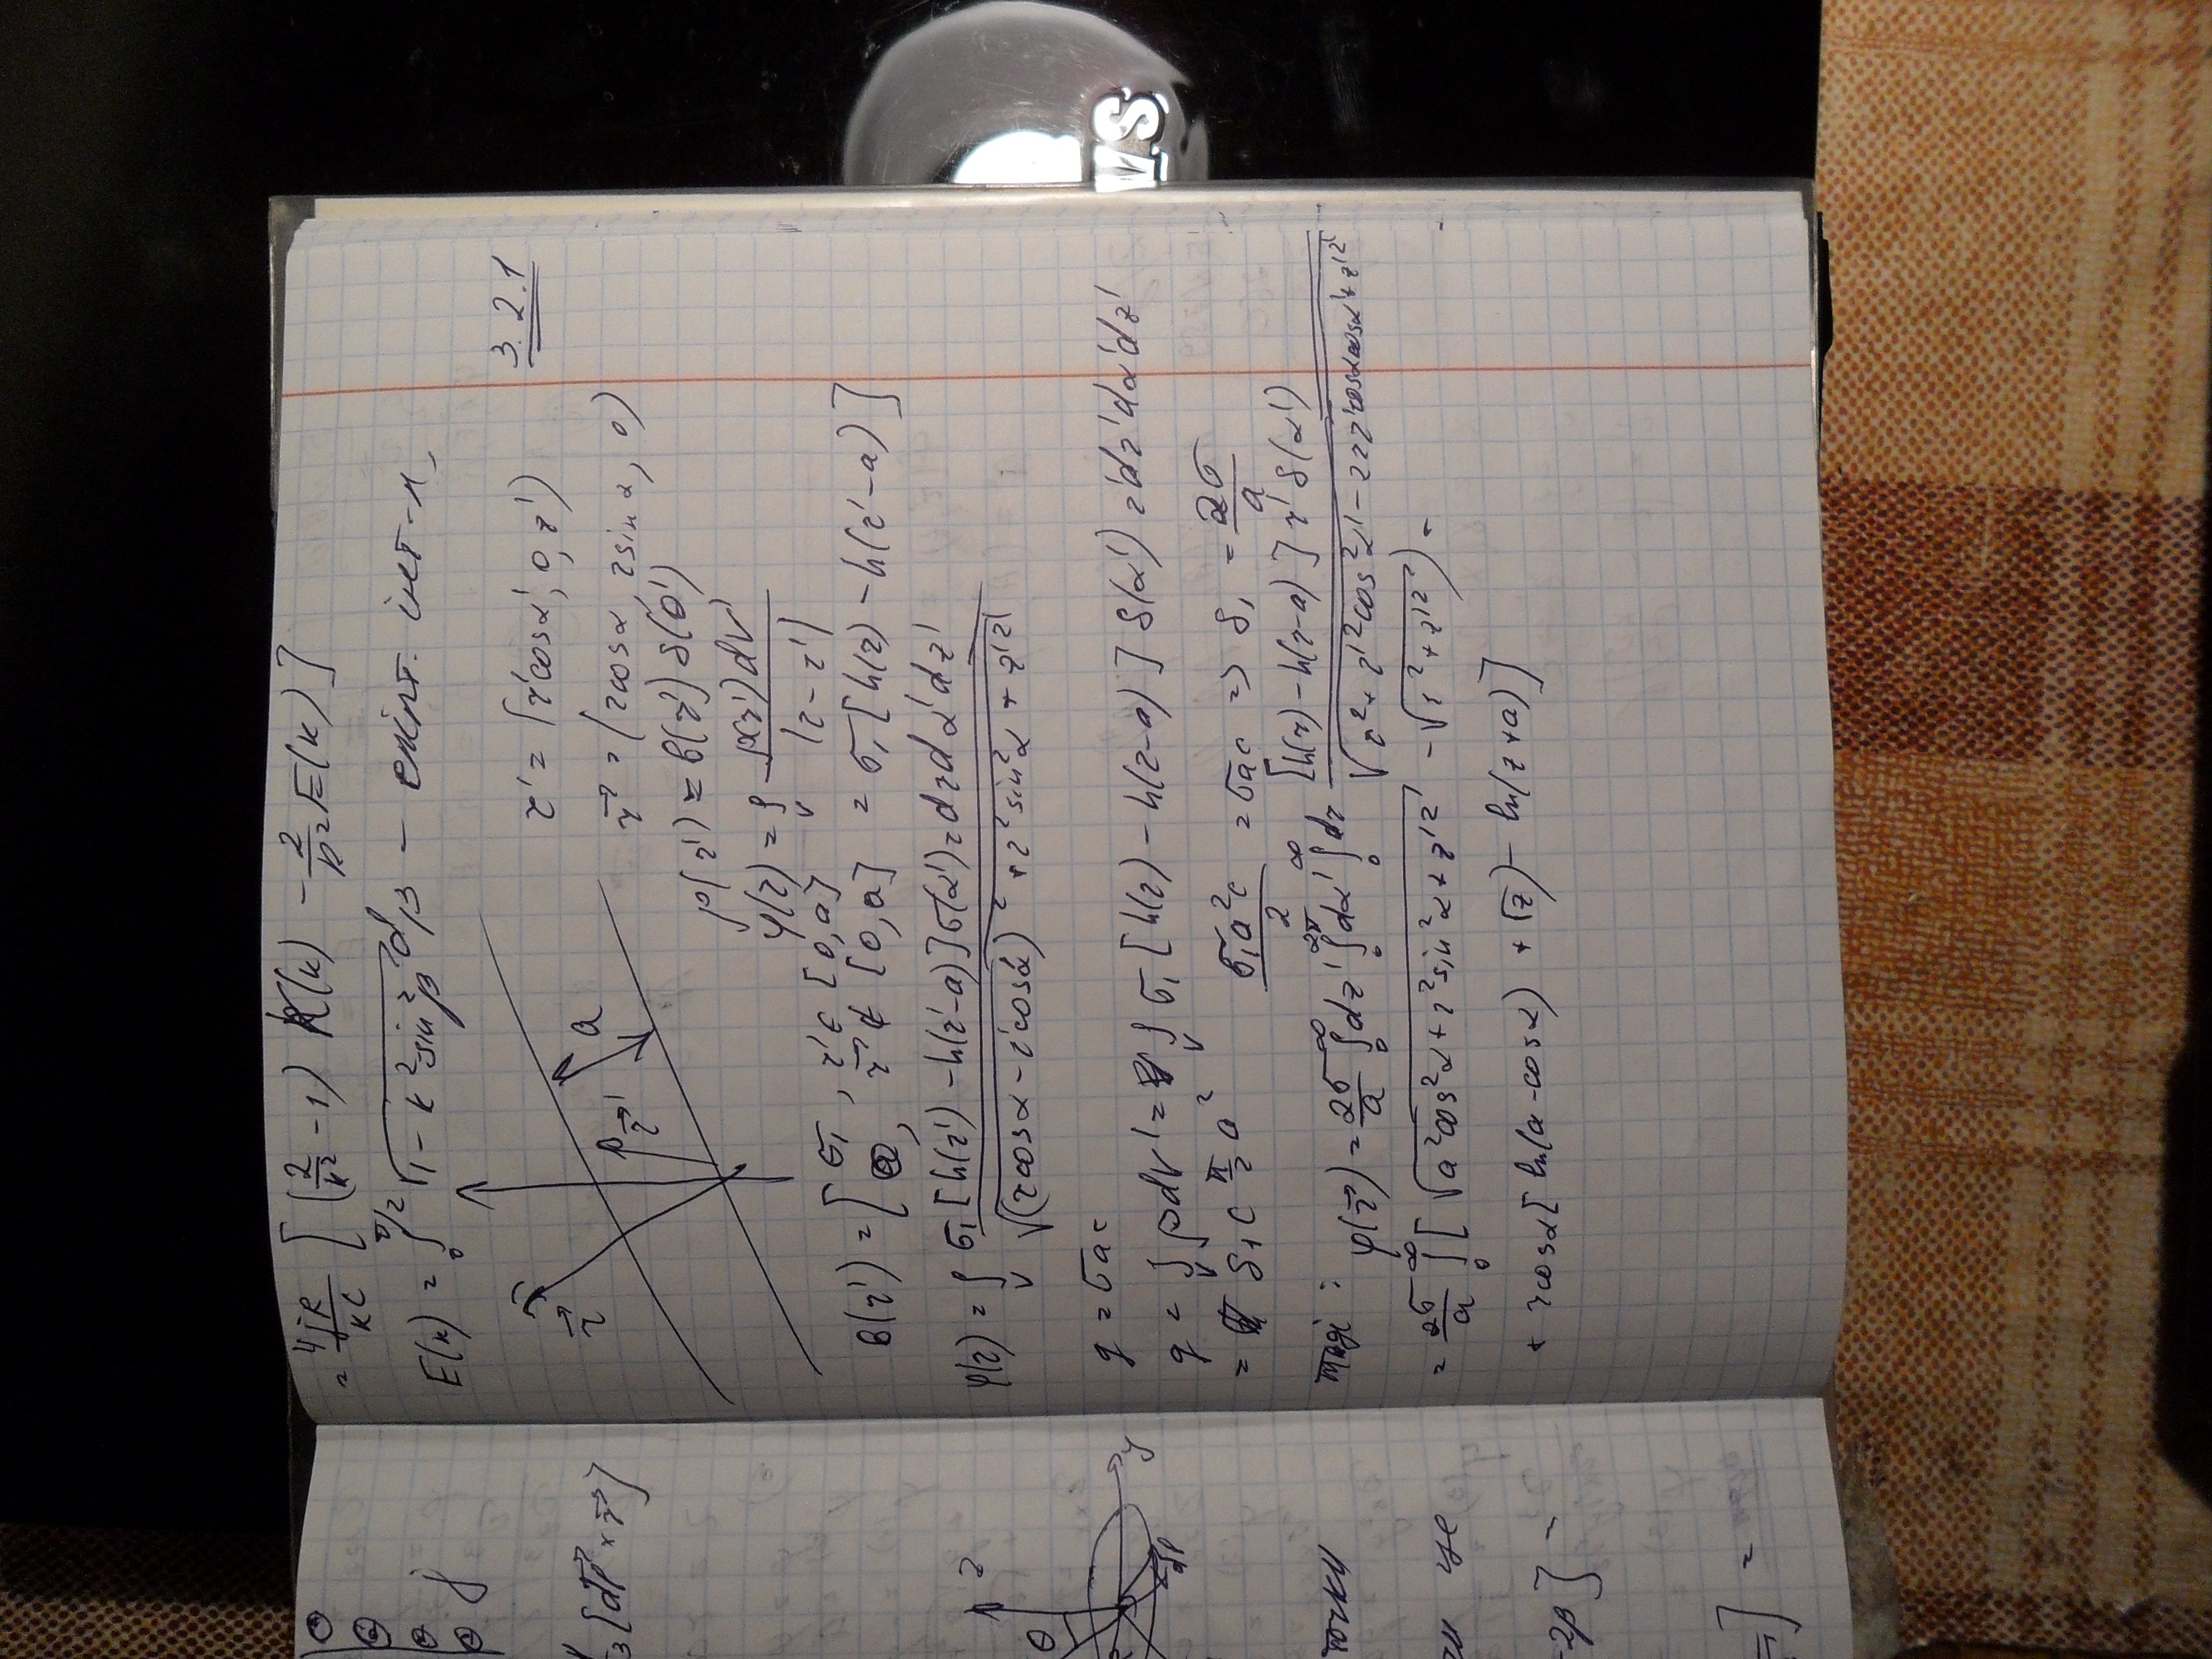 = 4jR/kc [(2/k² - 1) K(k) - 2/k² E(k)]
E(k) = ∫₀^(π/2) √(1 - k² sin²β) dβ – еліпт. інт-л.
3.2.1
r' = (r'cosα', 0, z')
r⃗ = (rcosα, rsinα, 0)
ρ(r') = B(r') δ(θ')
a
r⃗
r⃗'
φ(r) = ∫_V ρ(r')dV' / |r - r'|
B(r') = [ σ₁, r' ∈ [0, a]
0, r⃗' ∉ [0, a] = σ₁[h(r) - h(r'-a)]
φ(r) = ∫_V σ₁[h(r') - h(r'-a)]σ(α')r dr dα' dz' / √((rcosα - r'cosα')² + r² sin²α + z'²)
q = σac
q = ∫_V ρdV' = ∫_V σ₁[h(r) - h(r-a)] δ(α') r'dr'dα'dz'
= δ₁ c π/2 a² σ₁a²c/2 = σac => δ₁ = 2σ/a
тоді: φ(r⃗) = 2σ/a ∫₀^∞ dz' ∫₀^2π dα' ∫₀^∞ dr [h(r) - h(r-a)] r' δ(α') / √(r² + r'² cos²α' - 2rr'cosαcosα' + z'²)
= 2σ/a ∫₀^∞ [√(a²cos²α + r² sin²α + z'²) - √(r² + z'²)] -
+ rcosα[ln(a - cosα) + √z) - ln(z + a)]
θ
θ
θ
θ j
3 [dl⃗ × r⃗]
z
θ
y
dl
точки
це
- 2β] -
] =
VS